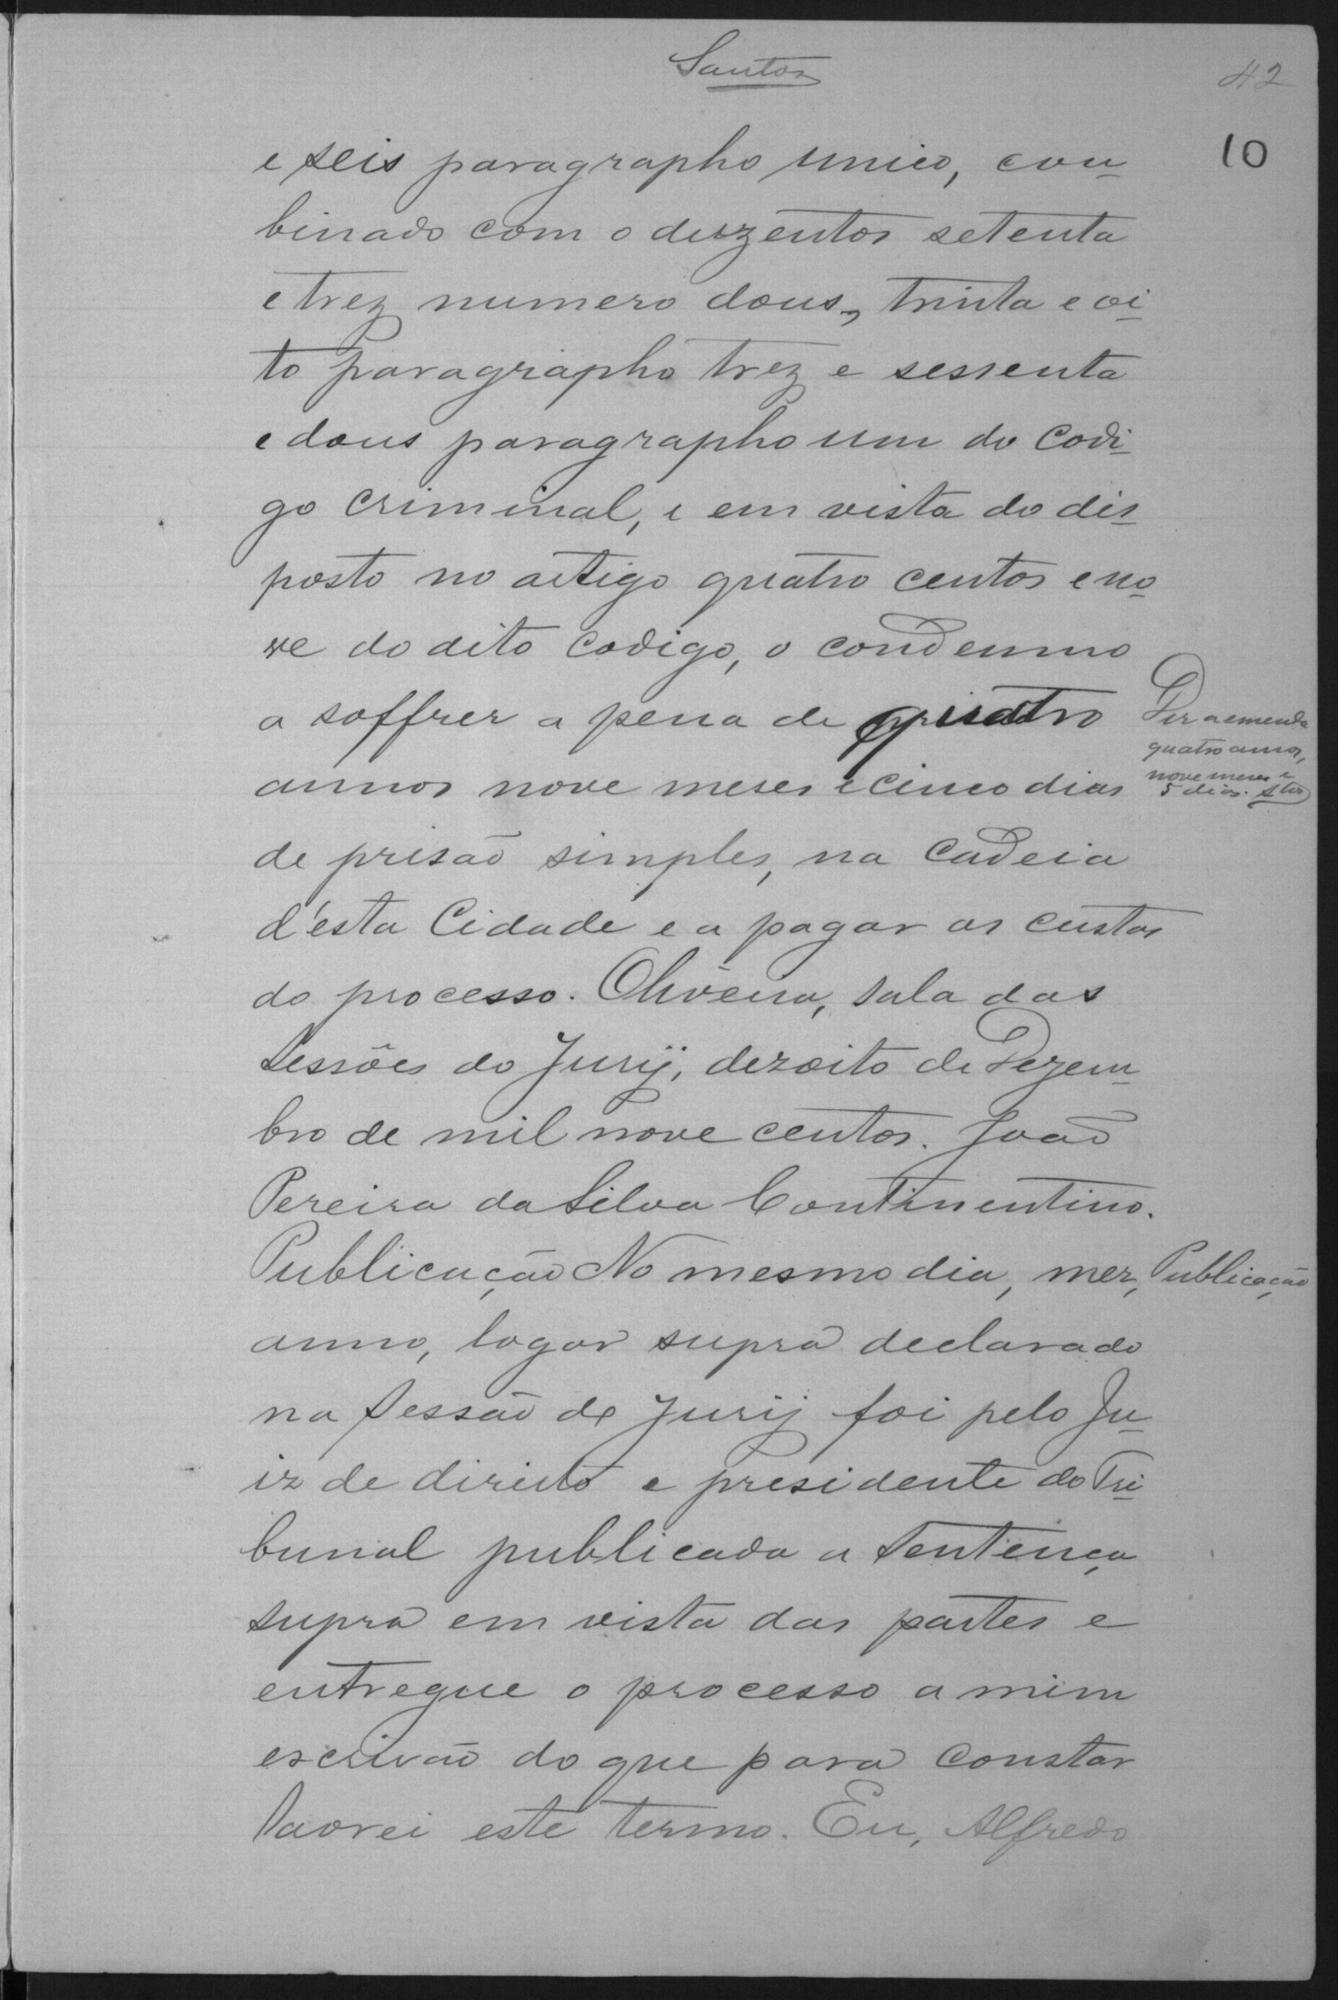 Santos
42
10
e seis paragrapho unico, com-
binado com o duzentos setenta
e trez numero dous, trinta e oi-
to paragrapho trez e sessenta
e dous paragrapho um do Codi-
go criminal, e em vista do dis-
posto no artigo quatro centos e no-
ve do dito Codigo, o condemno
a soffrer a pena de quatro
annos nove meses e cinco dias
Diz a emenda
quatro annos,
nove meses e
5 dias.
de prisão simples, na Cadeia
d'esta Cidade e a pagar as custas
do processo. Oliveira, Sala das
Sessões do Jury, dezoito de Dezem-
bro de mil nove centos. João
Pereira da Silva Continentino.
Publicação No mesmo dia, mez,
Publicação
anno, logar supra declarado
na Sessão do Jury foi pelo Ju-
iz de direito e presidente do Tri-
bunal publicada a Sentença
supra em vista das partes e
entregue o processo a mim
escrivão do que para constar
lavrei este termo. Eu, Alfredo